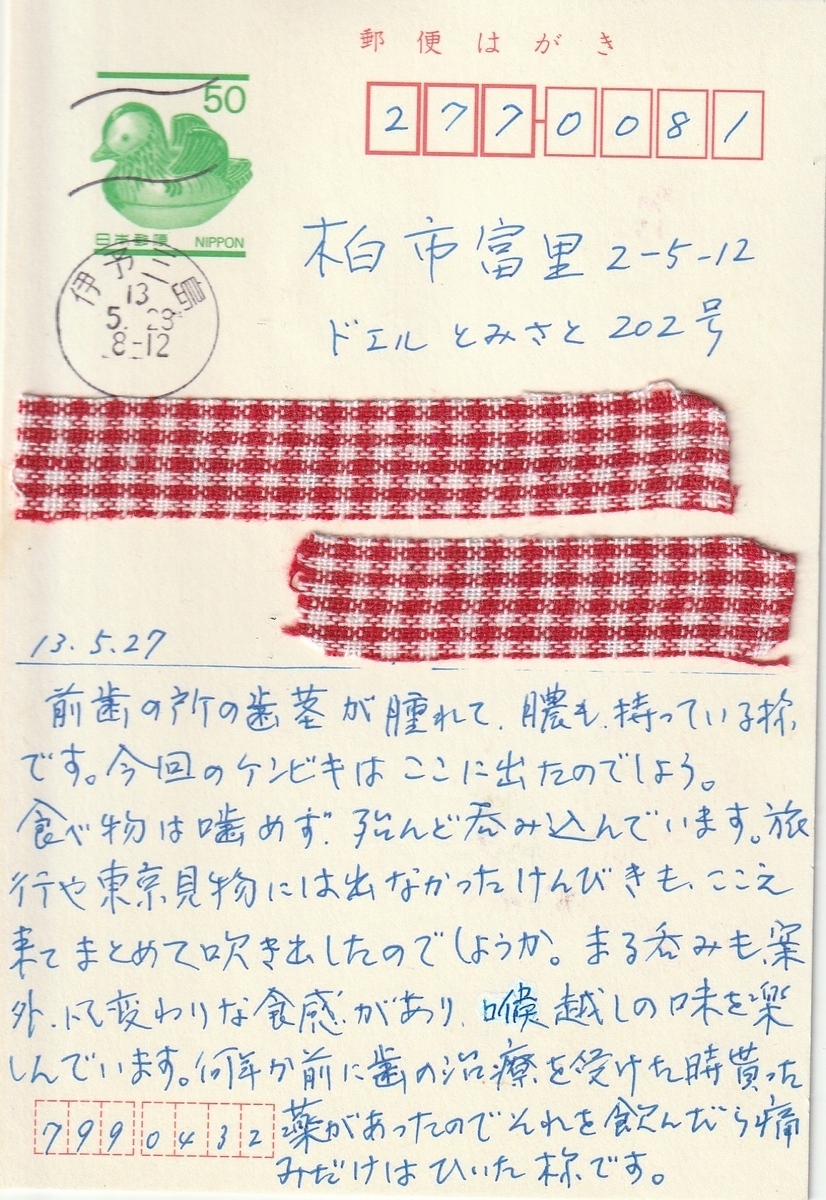 郵便はがき
50
日本郵便 NIPPON
277-0081
伊予三島
13
5. 29
8-12
柏市富里2-5-12
ドエルとみさと202号
13.5.27
前歯の所の歯茎が腫れて、膿も持っている様
です。今回のケンビキはここに出たのでしょう。
食べ物は噛めず、殆んど呑み込んでいます。旅
行や東京見物には出なかったけんびきも、ここえ
来てまとめて吹き出したのでしょうか。まる呑みも、案
外、変わりな食感があり、喉越しの味を楽
しんでいます。何年か前に歯の治療を受けた時貰った
薬があったのでそれを飲んだら痛
みだけはひいた様です。
7990432